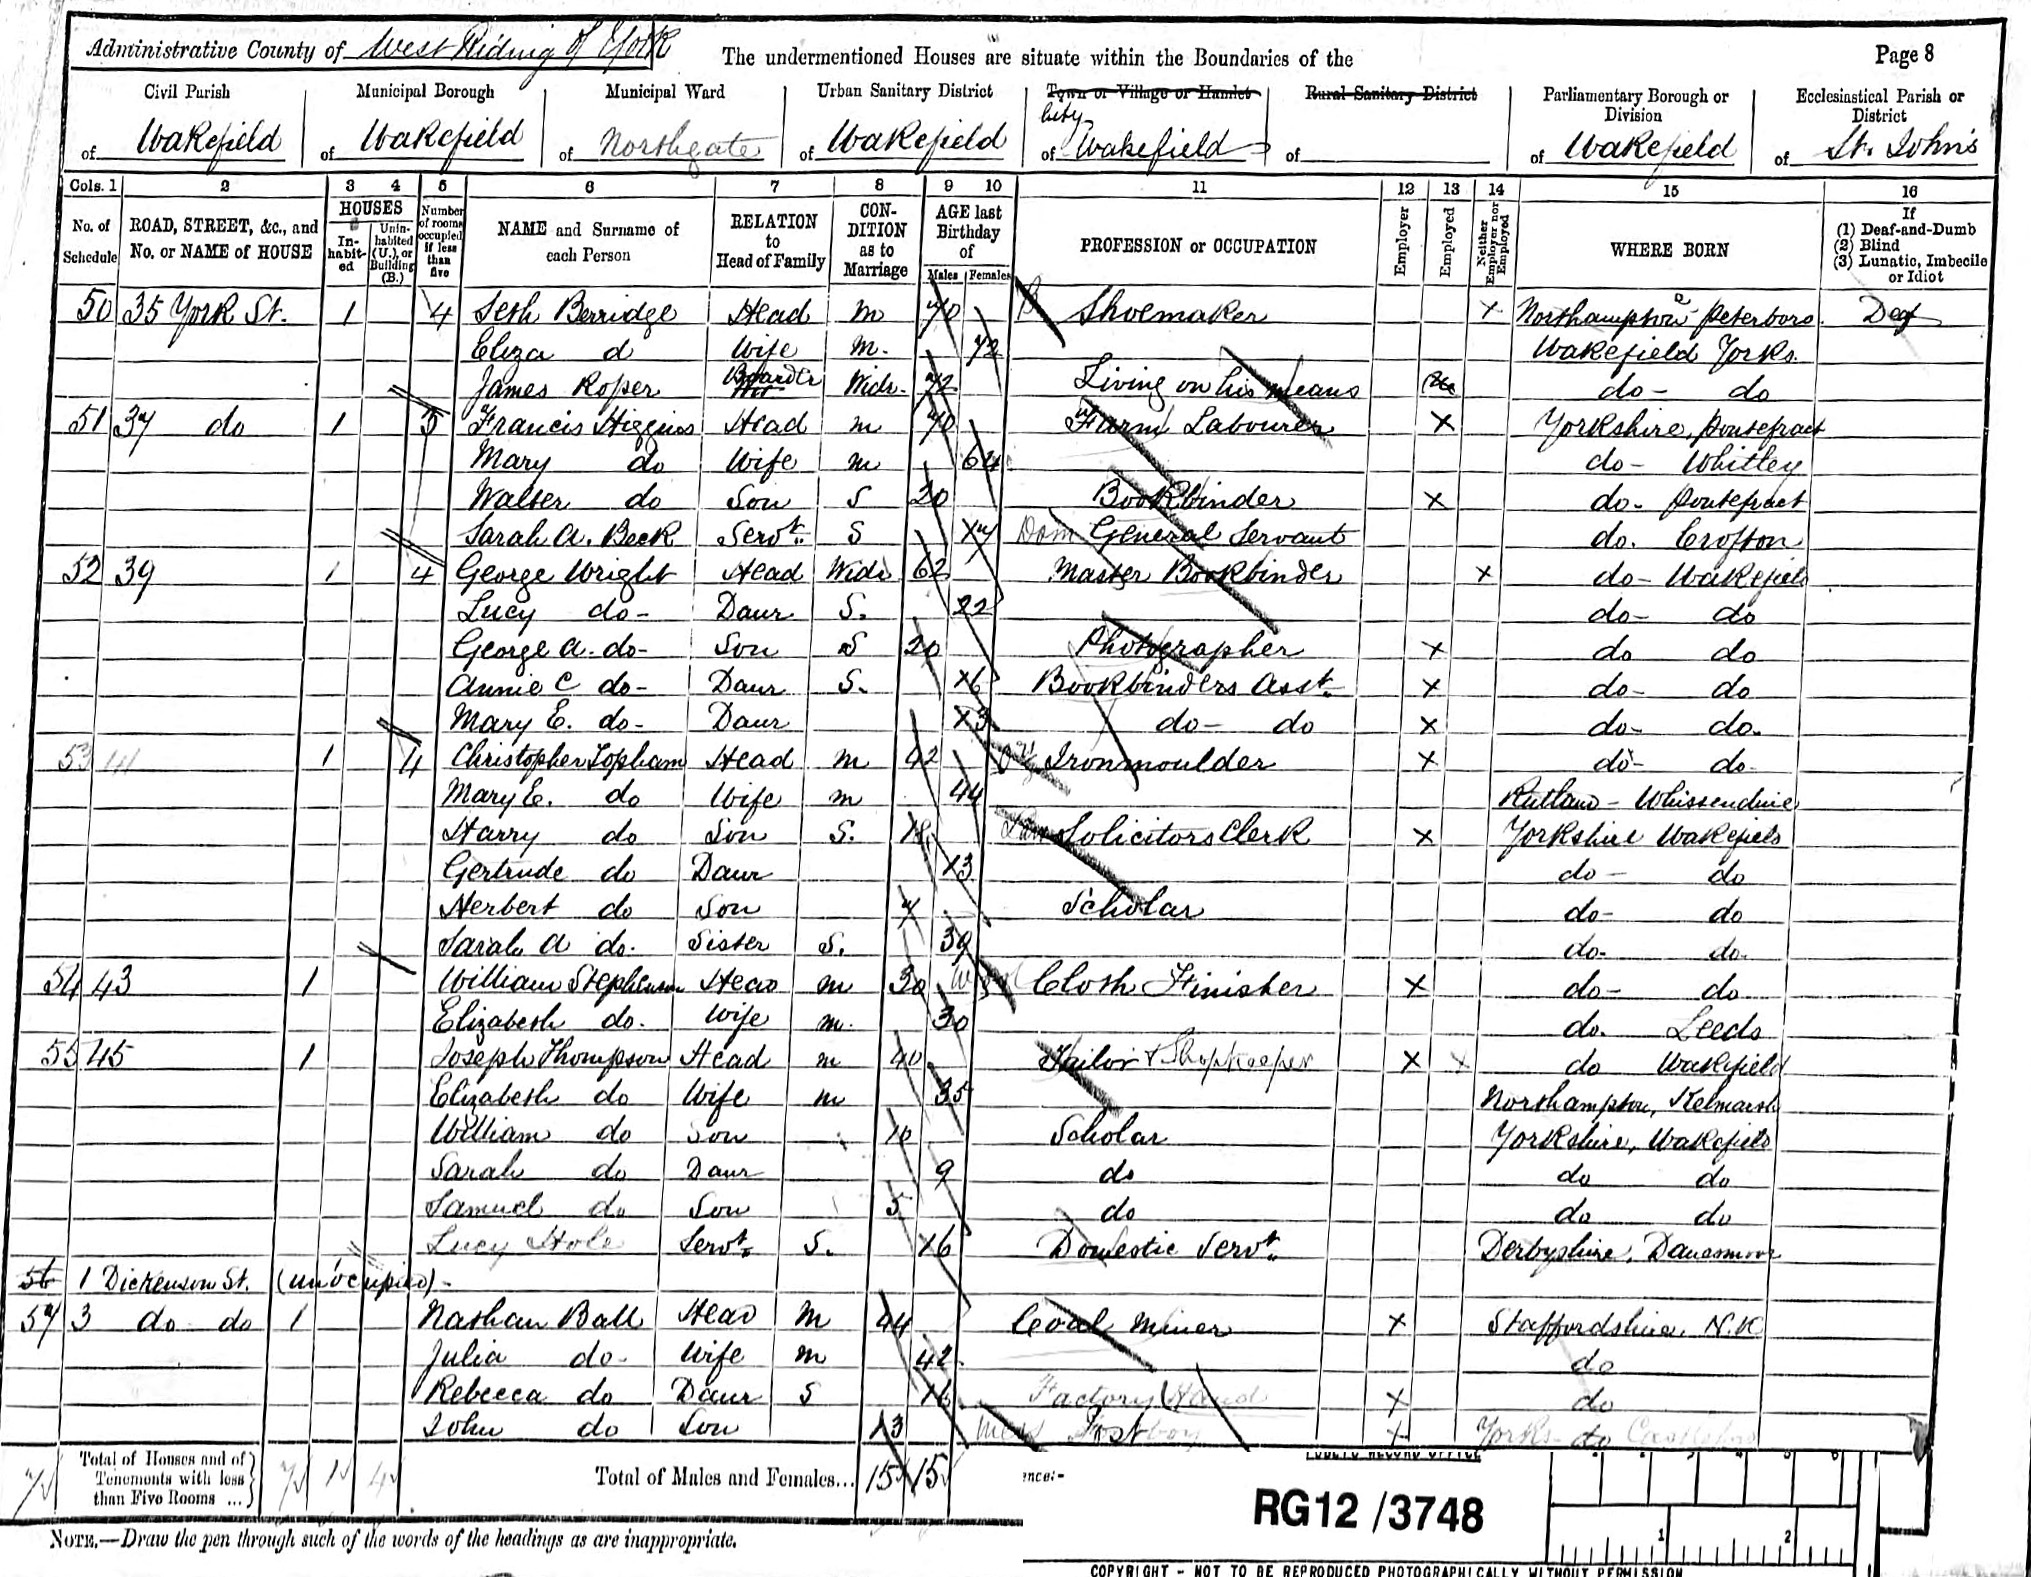 Administrative County of West Riding of York The undermentioned Houses are situate within the Boundaries of the Page 8
Civil Parish Municipal Borough Municipal Ward Urban Sanitary District Town or Village or Hamlet Rural Sanitary District Parliamentary Borough or Division Ecclesiastical Parish or District
City
of Wakefield of Wakefield of Northgate of Wakefield of Wakefield of of Wakefield of St. John's
Cols. 1 2 3 4 5 6 7 8 9 10 11 12 13 14 15 16
No. of Schedule ROAD, STREET, &c., and No. or NAME of HOUSE HOUSES In-habit-ed Unin-habited (U.), or Building (B.) Number of rooms occupied if less than five NAME and Surname of each Person RELATION to Head of Family CON-DITION as to Marriage AGE last Birthday of Males Females PROFESSION or OCCUPATION Employer Employed Neither Employer nor Employed WHERE BORN If (1) Deaf-and-Dumb (2) Blind (3) Lunatic, Imbecile or Idiot
50 35 York St. 1 4 Seth Berridge Head m 70 Shoemaker X Northampton Peterboro Deaf
Eliza d Wife m. 72 Wakefield Yorks.
James Roper Boarder Widr. 72 Living on his means do - do
51 37 do 1 3 Francis Higgins Head m 70 Farm Labourer X Yorkshire, Pontefract
Mary do Wife m 64 do - Whitley
Walter do Son S 20 Bookbinder X do - Pontefract
Sarah A. Beck Servt. S 17 Dom General Servant do. Crofton
52 39 1 4 George Wright Head Widr 62 Master Bookbinder X do - Wakefield
Lucy do - Daur S. 22 do - do
George A. do - Son S 20 Photographer X do do
Annie C do - Daur S. 16 Bookbinders Asst. X do - do
Mary E. do - Daur 13 do - do X do - do.
53 41 1 4 Christopher Topham Head m 42 Ironmoulder X do - do
Mary E. do Wife m 44 Rutland - Whissendine
Harry do Son S. 18 Law Solicitors Clerk X Yorkshire Wakefield
Gertrude do Daur 13 do - do
Herbert do Son 7 Scholar do - do
Sarah A do. Sister S. 39 do. do.
54 43 1 William Stephenson Head m 30 Cloth Finisher X do - do
Elizabeth do. Wife m. 30 do. Leeds
55 45 1 Joseph Thompson Head m 40 Tailor & Shopkeeper X X do Wakefield
Elizabeth do Wife m 35 Northampton, Kelmarsh
William do Son 10 Scholar Yorkshire, Wakefield
Sarah do Daur 9 do do do
Samuel do Son 5 do do do
Lucy Hole Servt. S. 16 Domestic Servt. Derbyshire,
56 1 Dickenson St. (unoccupied) -
57 3 do do 1 Nathan Ball Head M 44 Coal Miner X Staffordshire, N.K
Julia do - Wife m 42 do
Rebecca do Daur S 16 Factory Hand X do
John do Son 13 Post boy X Yorks - do
Total of Houses and of Tenements with less than Five Rooms ... 7 7 1 4 Total of Males and Females... 15 15
NOTE.—Draw the pen through such of the words of the headings as are inappropriate.
PUBLIC RECORD OFFICE
nce:-
RG12 /3748
1 2
COPYRIGHT - NOT TO BE REPRODUCED PHOTOGRAPHICALLY WITHOUT PERMISSION